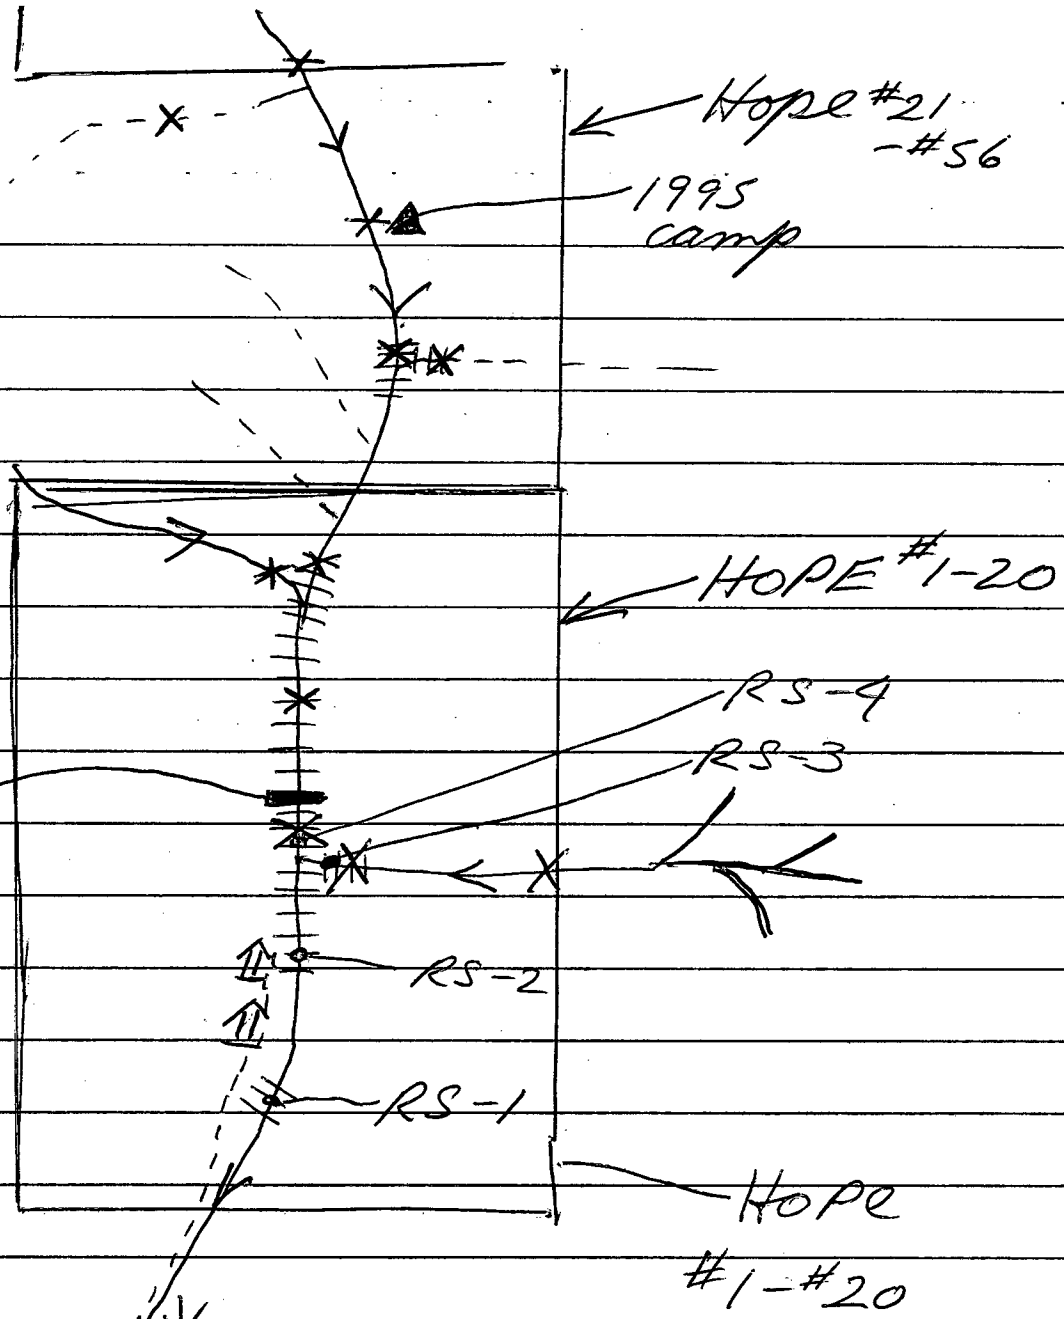 Hope #21
-#56
1995
camp
HOPE #1-20
RS-4
RS-3
RS-2
RS-1
HOPE
#1-#20